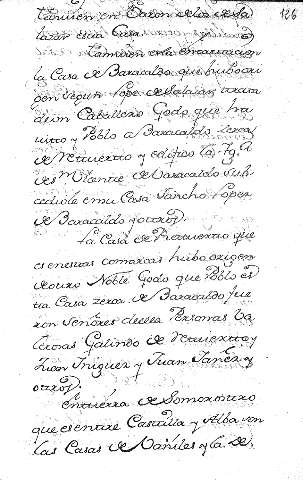 126
tamuien en Baron de los de Sa
lazar en la Casa
tamuien en la encartacion
la Casa de Baracaldo que hubo ori
gen segun Lope de Salazar
de un Caballero Godo que ha
uito y Poblo a Baracaldo zerca
de Retuerto y edifico la Ygª
de Sn Vicente de Baracaldo sub
cediole en su Casa Sancho Lopez
de Baracaldo y otros
La Casa de Retuerto que
es en estas comarcas hubo origen
de otro Noble Godo que Poblo es
ta Casa zerca de Baracaldo fue
ron Señores de ella Personas Va
lerosas Galindo de Retuerto y
Juan Yñiguez y Juan Sanchez y
otros
En tierra de Somorrostro
que es entre Castilla y Alba son
las Casas de Mañiles y la de